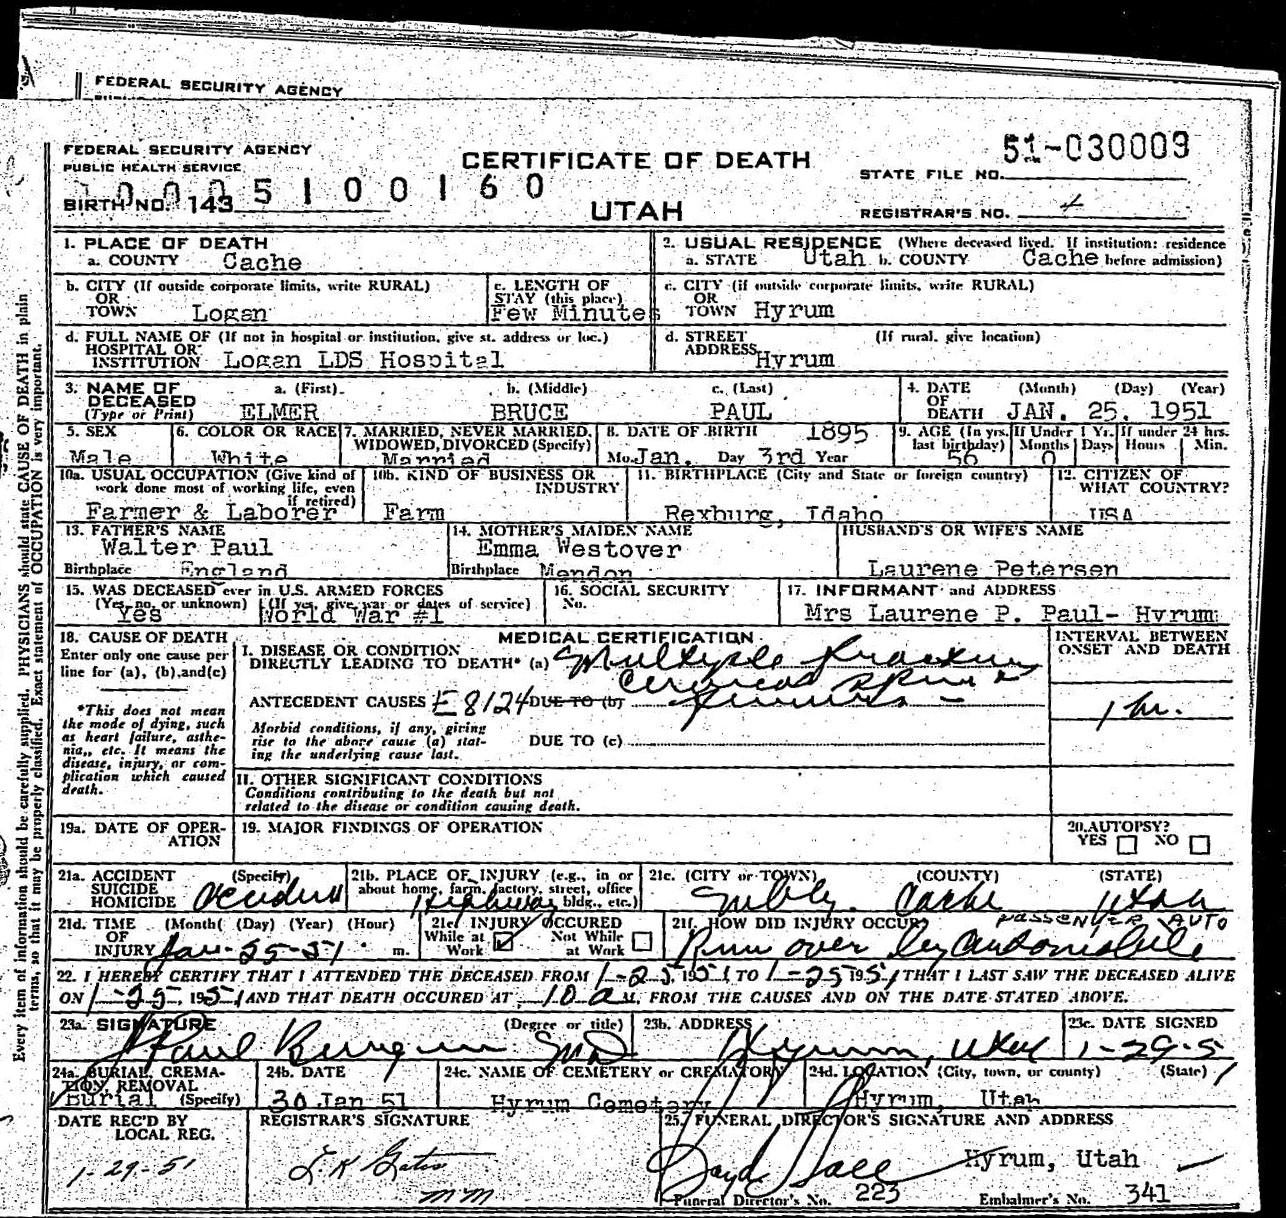 FEDERAL SECURITY AGENCY
FEDERAL SECURITY AGENCY
PUBLIC HEALTH SERVICE
CERTIFICATE OF DEATH
51-030009
STATE FILE NO.
5100160
BIRTH NO. 143
UTAH
REGISTRAR'S NO. 4
1. PLACE OF DEATH
a. COUNTY Cache
2. USUAL RESIDENCE (Where deceased lived. If institution: residence before admission)
a. STATE Utah b. COUNTY Cache
b. CITY (If outside corporate limits, write RURAL)
OR
TOWN Logan
c. LENGTH OF
STAY (this place)
Few Minutes
c. CITY (if outside corporate limits, write RURAL)
OR
TOWN Hyrum
d. FULL NAME OF (If not in hospital or institution, give st. address or loc.)
HOSPITAL OR
INSTITUTION Logan LDS Hospital
d. STREET (If rural, give location)
ADDRESS Hyrum
3. NAME OF DECEASED
(Type or Print)
a. (First) b. (Middle) c. (Last)
ELMER BRUCE PAUL
4. DATE OF DEATH
(Month) (Day) (Year)
JAN. 25, 1951
5. SEX
Male
6. COLOR OR RACE
White
7. MARRIED, NEVER MARRIED,
WIDOWED, DIVORCED (Specify)
Married
8. DATE OF BIRTH 1895
Mo. Jan. Day 3rd Year
9. AGE (In yrs. last birthday)
56
If Under 1 Yr. Months Days
0
If under 24 hrs. Hours Min.
10a. USUAL OCCUPATION (Give kind of
work done most of working life, even
if retired)
Farmer & Laborer
10b. KIND OF BUSINESS OR
INDUSTRY
Farm
11. BIRTHPLACE (City and State or foreign country)
Rexburg, Idaho
12. CITIZEN OF
WHAT COUNTRY?
USA
13. FATHER'S NAME
Walter Paul
Birthplace England
14. MOTHER'S MAIDEN NAME
Emma Westover
Birthplace Mendon
HUSBAND'S OR WIFE'S NAME
Laurene Petersen
15. WAS DECEASED ever in U.S. ARMED FORCES
(Yes, no, or unknown) (If yes, give war or dates of service)
Yes World War #1
16. SOCIAL SECURITY
No.
17. INFORMANT and ADDRESS
Mrs Laurene P. Paul- Hyrum
18. CAUSE OF DEATH
Enter only one cause per
line for (a), (b), and (c)
*This does not mean
the mode of dying, such
as heart failure, asthe-
nia,, etc. It means the
disease, injury, or com-
plication which caused
death.
MEDICAL CERTIFICATION
I. DISEASE OR CONDITION
DIRECTLY LEADING TO DEATH* (a) Multiple
ANTECEDENT CAUSES E8124 DUE TO (b)
Morbid conditions, if any, giving
rise to the above cause (a) stat-
ing the underlying cause last.
DUE TO (c)
II. OTHER SIGNIFICANT CONDITIONS
Conditions contributing to the death but not
related to the disease or condition causing death.
INTERVAL BETWEEN
ONSET AND DEATH
1 hr.
19a. DATE OF OPER-
ATION
19. MAJOR FINDINGS OF OPERATION
20. AUTOPSY?
YES NO
21a. ACCIDENT (Specify)
SUICIDE
HOMICIDE Accident
21b. PLACE OF INJURY (e.g., in or
about home, farm, factory, street, office
bldg., etc.)
Highway
21c. (CITY or TOWN) (COUNTY) (STATE)
Cache Utah
21d. TIME (Month) (Day) (Year) (Hour)
OF
INJURY Jan-25-51 m.
21e. INJURY OCCURED
While at Work Not While at Work
21f. HOW DID INJURY OCCUR
PASSENGER AUTO
Run over by automobile
22. I HEREBY CERTIFY THAT I ATTENDED THE DECEASED FROM 1-25, 1951 TO 1-25 1951, THAT I LAST SAW THE DECEASED ALIVE
ON 1-25, 1951 AND THAT DEATH OCCURED AT 10 a M, FROM THE CAUSES AND ON THE DATE STATED ABOVE.
23a. SIGNATURE (Degree or title)
Paul MD
23b. ADDRESS
Hyrum, Utah
23c. DATE SIGNED
1-29-51
24a. BURIAL, CREMA-
TION, REMOVAL
Burial (Specify)
24b. DATE
30 Jan 51
24c. NAME OF CEMETERY or CREMATORY
Hyrum Cemetery
24d. LOCATION (City, town, or county) (State)
Hyrum, Utah
DATE REC'D BY
LOCAL REG.
1-29-51
REGISTRAR'S SIGNATURE
mm
25. FUNERAL DIRECTOR'S SIGNATURE AND ADDRESS
Hyrum, Utah
Funeral Director's No. 223 Embalmer's No. 341
Every item of information should be carefully supplied. PHYSICIANS should state CAUSE OF DEATH in plain
terms, so that it may be properly classified. Exact statement of OCCUPATION is very important.